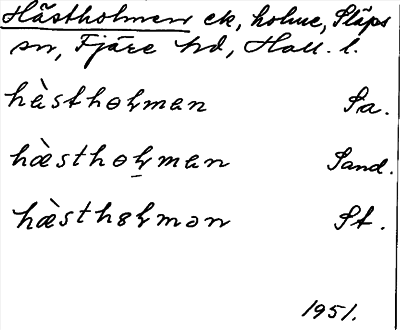 Hästholmen ek, holme, Släps
sn, Fjäre hd, Hall. l.
hàsthɵɫmən Sa.
hæ̀sthɵɫmən Sand.
hæ̀sthȣɫmən St.
1951.